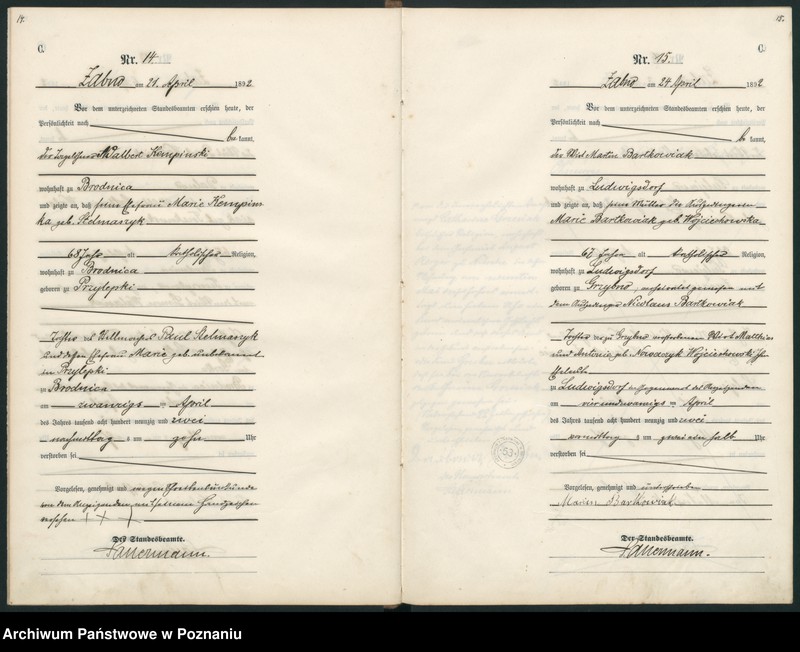 14.
C.
Nr. 14.
Żabno am 21. April 1892
Vor dem unterzeichneten Standesbeamten erschien heute, der
Persönlichkeit nach
be kannt,
der Walbert Kempinski
wohnhaft zu Brodnica
und zeigte an, daß seine Ehefrau Marie Kempins-
ka geb. Stelmaszyk
68 Jahr alt katholischer Religion,
wohnhaft zu Brodnica
geboren zu Przylepki
Tochter des Paul Stelmaszyk
und dessen Ehefrau Marie geb. unbekannt
in Przylepki
zu Brodnica
am zwanzigs ten April
des Jahres tausend acht hundert neunzig und zwei
nachmittag s um zehn Uhr
verstorben sei
Vorgelesen, genehmigt und wegen
von dem Anzeigenden mit seinem Handzeichen
versehen + + +
Der Standesbeamte.
15.
C.
Nr. 15.
Żabno am 24 April 1892
Vor dem unterzeichneten Standesbeamten erschien heute, der
Persönlichkeit nach
be kannt,
der Wirt Martin Bartkowiak
wohnhaft zu Ludwigsdorf
und zeigte an, daß seine Mutter die
Marie Bartkowiak geb. Wojcieskowska
67 Jahre alt katholischer Religion,
wohnhaft zu Ludwigsdorf
geboren zu Grzybno, verheiratet gewesen mit
dem Nicolaus Bartkowiak
Tochter des zu Grzybno verstorbenen Wirt Matthias
und Antonie geb. Nowaczyk Wojcieskowski'schen
Eheleute
zu Ludwigsdorf in Gegenwart des Anzeigenden
am vierundzwanzigs ten April
des Jahres tausend acht hundert neunzig und zwei
vormittag s um zwei ein halb Uhr
verstorben sei
Vorgelesen, genehmigt und unterschrieben
Marcin Bartkowiak
Der Standesbeamte.
53
Archiwum Państwowe w Poznaniu